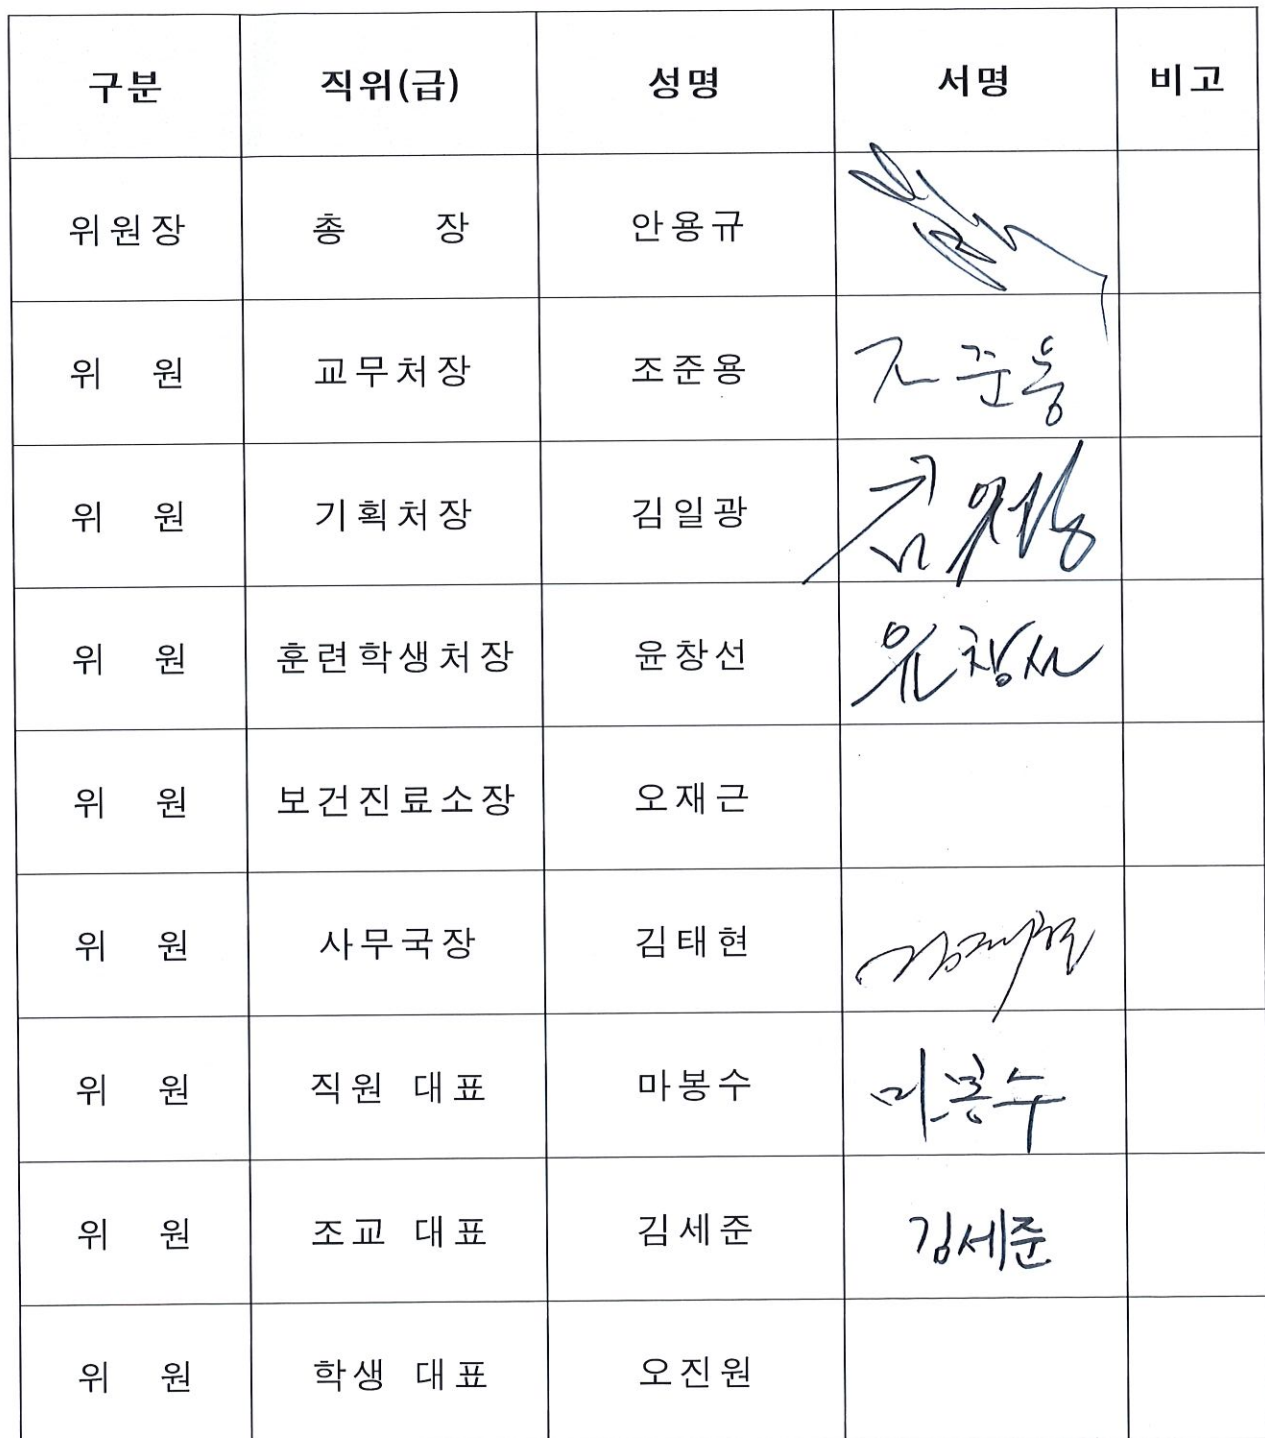 구분 직위(급) 성명 서명 비고
위원장 총 장 안용규
위 원 교무처장 조준용 조준용
위 원 기획처장 김일광
위 원 훈련학생처장 윤창선 윤창선
위 원 보건진료소장 오재근
위 원 사무국장 김태현 김태현
위 원 직원 대표 마봉수 마봉수
위 원 조교 대표 김세준 김세준
위 원 학생 대표 오진원